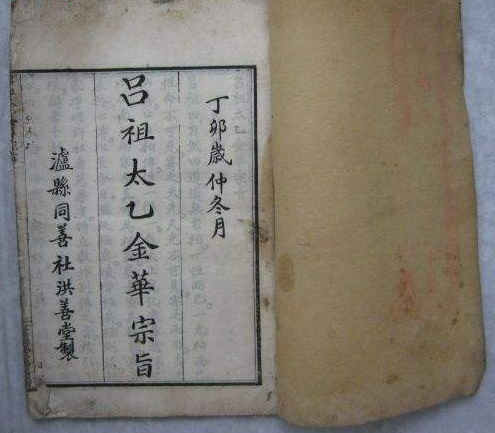 丁卯歲仲冬月
呂祖太乙金華宗旨
瀘縣同善社洪善堂製